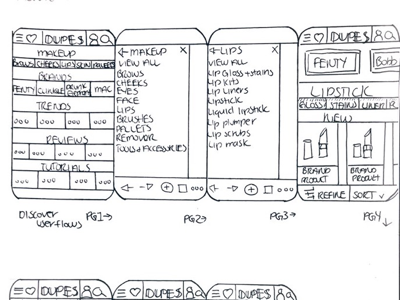 DUPES
MAKEUP
BROWS CHEEKS LIPS SKIN PALLETS
BRANDS
FENTY CLINIQUE DRUNK ELEPHANT MAC
TRENDS
REVIEWS
TUTORIALS
← MAKEUP X
VIEW ALL
BROWS
CHEEKS
EYES
FACE
LIPS
BRUSHES
PALLETS
REMOVER
TOOLS + ACCESSORIES
← LIPS X
VIEW ALL
Lip Gloss + stains
Lip kits
Lip Liners
Lipstick
Liquid lipstick
Lip plumper
Lip scrubs
Lip mask
DUPES
FENTY Bobb
LIPSTICK
GLOSS STAINS LINER
NEW
BRAND BRAND
PRODUCT PRODUCT
REFINE SORT
Discover
userflows
PG1→
PG2→
PG3→
PG4↓
DUPES
DUPES
DUPES